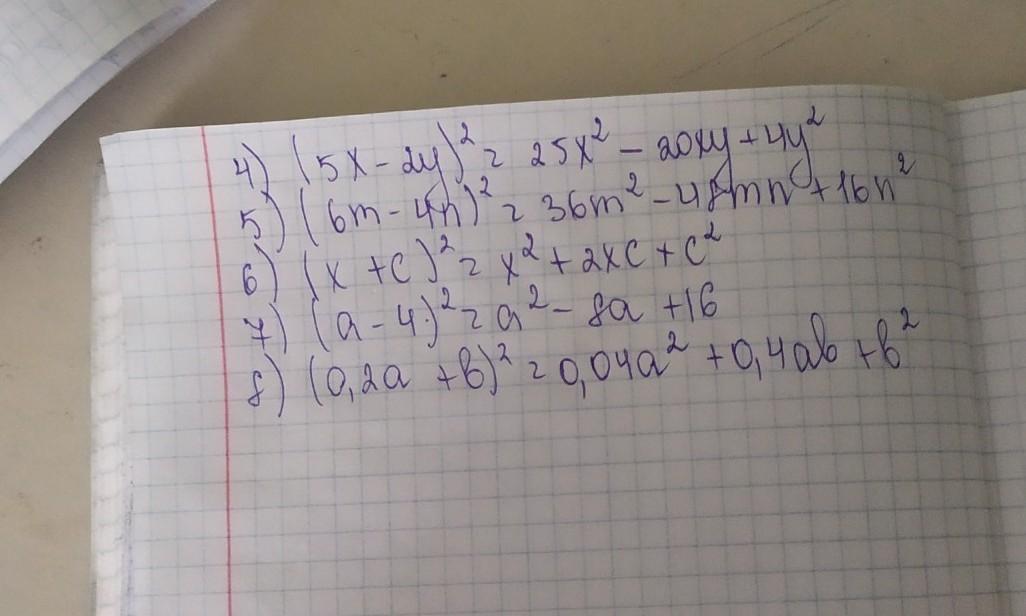 4) (5x - 2y)² = 25x² - 20xy + 4y²
5) (6m - 4n)² = 36m² - 48mn + 16n²
6) (x + c)² = x² + 2xc + c²
7) (a - 4)² = a² - 8a + 16
8) (0,2a + b)² = 0,04a² + 0,4ab + b²